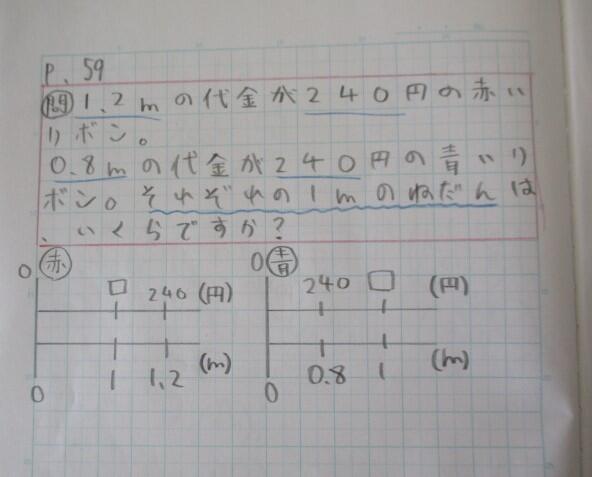 P. 59
問 1.2mの代金が240円の赤い
リボン。
0.8mの代金が240円の青いリ
ボン。それぞれの1mのねだんは
、いくらですか？
0 赤
□ 240 (円)
1 1.2 (m)
0
0 青
240 □ (円)
0.8 1 (m)
0